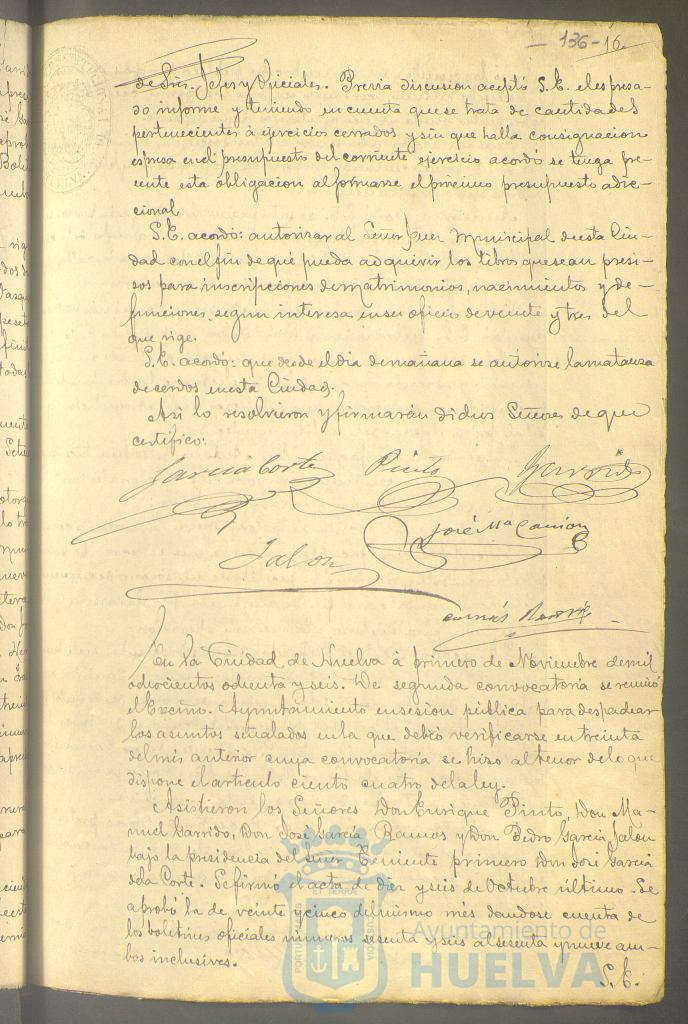 136-16
de Sres. Jefes y Oficiales. Previa discusion aceptó S.E. el espresa-
do informe y teniendo en cuenta que se trata de cantidades
pertenecientes á ejercicios cerrados y sin que halla consignacion
espresa en el presupuesto del corriente ejercicio acordó se tenga pre-
sente esta obligacion al formarse el prócimo presupuesto adic-
cional
S.E. acordó: autorizar al Señor Juez Municipal de esta Ciu-
dad con el fin de que pueda adquirir los libros que sean presi-
sos para inscripciones de matrimonios, nacimientos y de-
funciones, segun interesa en su oficio de veinte y tres del
que rige.
S.E. acordó: que desde el dia de mañana se autorize la matanza
de cerdos en esta Ciudad.
Asi lo resolvieron y firmarán dichos Señores de que
certifico:
Garcia Corte Pinto Garrido
José Mª
Jalon
En la Ciudad de Huelva á primero de Noviembre de mil
ochocientos ochenta y seis. De segunda convocatoria se reunió
el Excmo. Ayuntamiento en sesion pública para despachar
los asuntos señalados en la que debió verificarse en treinta
del mes anterior cuya convocatoria se hizo al tenor de lo que
dispone el articulo ciento cuatro de la ley.
Asistieron los Señores Don Enrique Pinto, Don Ma-
nuel Garrido, Don José García Ramos y Don Pedro García Jalon
bajo la presidencia del Señor Teniente primero Don José García
de la Corte. Se firmó el acta de diez y seis de Octubre último. Se
aprobó la de veinte y cinco del mismo mes dandose cuenta de
los boletines oficiales números sesenta y seis al sesenta y nueve am-
bos inclusives.
S.E.
PORTUS MARIS ET TERRAE CUSTODIA
Ayuntamiento de
HUELVA